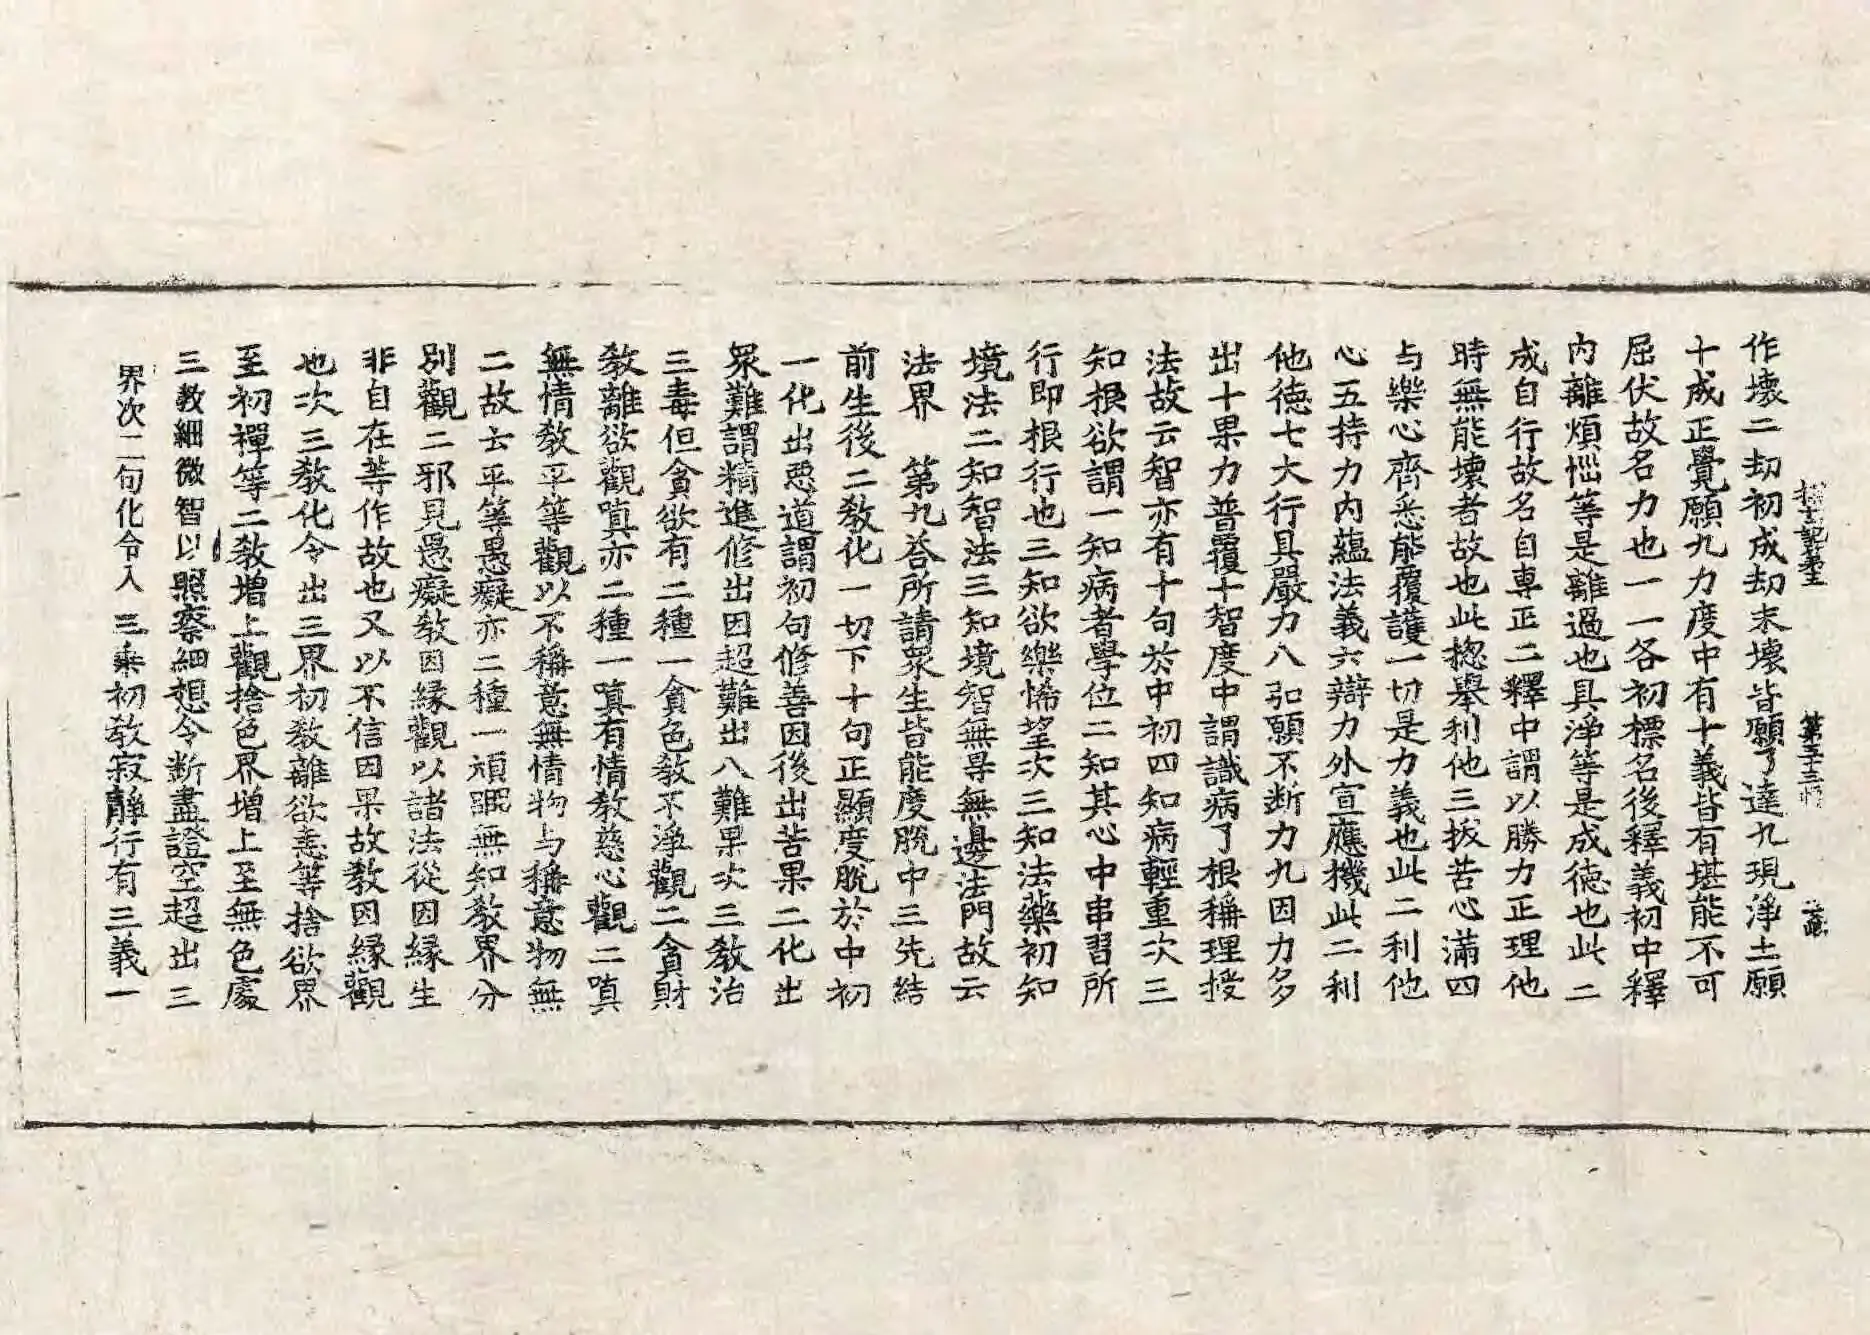 第五 第三十三張
作壞二劫初成劫末壞皆願了達九現淨土願
十成正覺願九力度中有十義皆有堪能不可
屈伏故名力也一一各初標名後釋義初中釋
內離煩惱等是離過也具淨等是成德也此二
成自行故名自專正二釋中謂以勝力正理他
時無能壞者故也此揔舉利他三拔苦心滿四
与樂心齊悉能覆護一切是力義也此二利他
心五持力內蘊法義六辯力外宣應機此二利
他德七大行具嚴力八弘願不断力九因力多
出十果力普覆十智度中謂識病了根稱理授
法故云智亦有十句於中初四知病輕重次三
知根欲謂一知病者學位二知其心中串習所
行即根行也三知欲樂悕望次三知法藥初知
境法二知智法三知境智無㝵無邊法門故云
法界 第九荅所請眾生皆能度脫中三先結
前生後二教化一切下十句正顯度脫於中初
一化出惡道謂初句修善因後出苦果二化出
眾難謂精進修出因超難出八難果次三教治
三毒但貪欲有二種一貪色教不淨觀二貪財
教離欲觀嗔亦二種一嗔有情教慈心觀二嗔
無情教平等觀以不稱意無情物与稱意物無
二故云平等愚癡亦二種一頑嚚無知教界分
別觀二邪見愚癡教因緣觀以諸法從因緣生
非自在等作故也又以不信因果故教因緣觀
也次三教化令出三界初教離欲恚等捨欲界
至初禪等二教增上觀捨色界增上至無色處
三教細微智以照察細想令断盡證空超出三
界次二句化令入三乘初教寂靜行有三義一